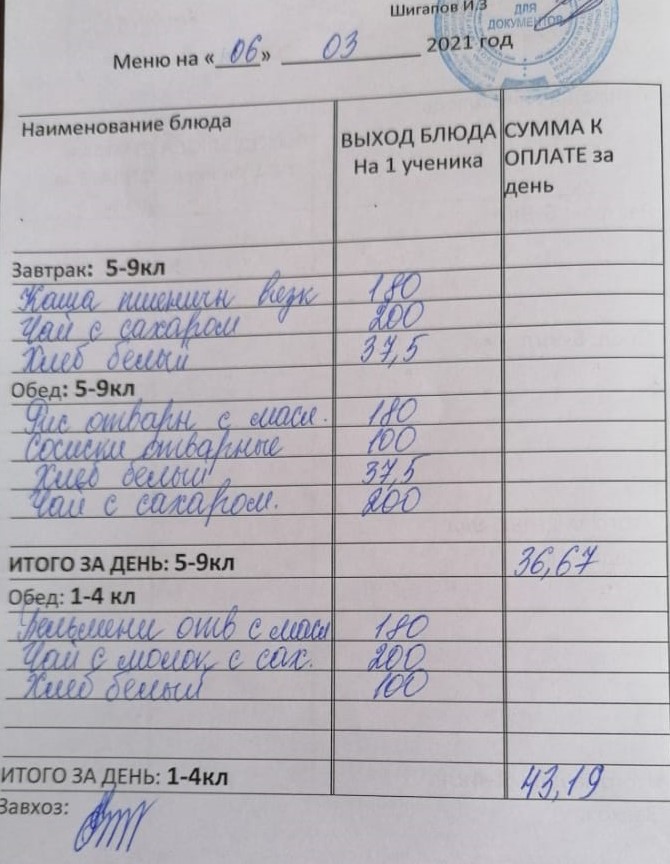 Шигапов И.З
ДЛЯ
ДОКУМЕНТОВ
Меню на «06» 03 2021 год
Наименование блюда
ВЫХОД БЛЮДА
На 1 ученика
СУММА К
ОПЛАТЕ за
день
Завтрак: 5-9кл
Каша пшеничн вязк 180
Чай с сахаром 200
Хлеб белый 37,5
Обед: 5-9кл
Рис отварн с масл. 180
Сосиски отварные 100
Хлеб белый 37,5
Чай с сахаром. 200
ИТОГО ЗА ДЕНЬ: 5-9кл 36,67
Обед: 1-4 кл
Пельмени отв с масл 180
Чай с молок с сах. 200
Хлеб белый 100
ИТОГО ЗА ДЕНЬ: 1-4кл 43,19
Завхоз: